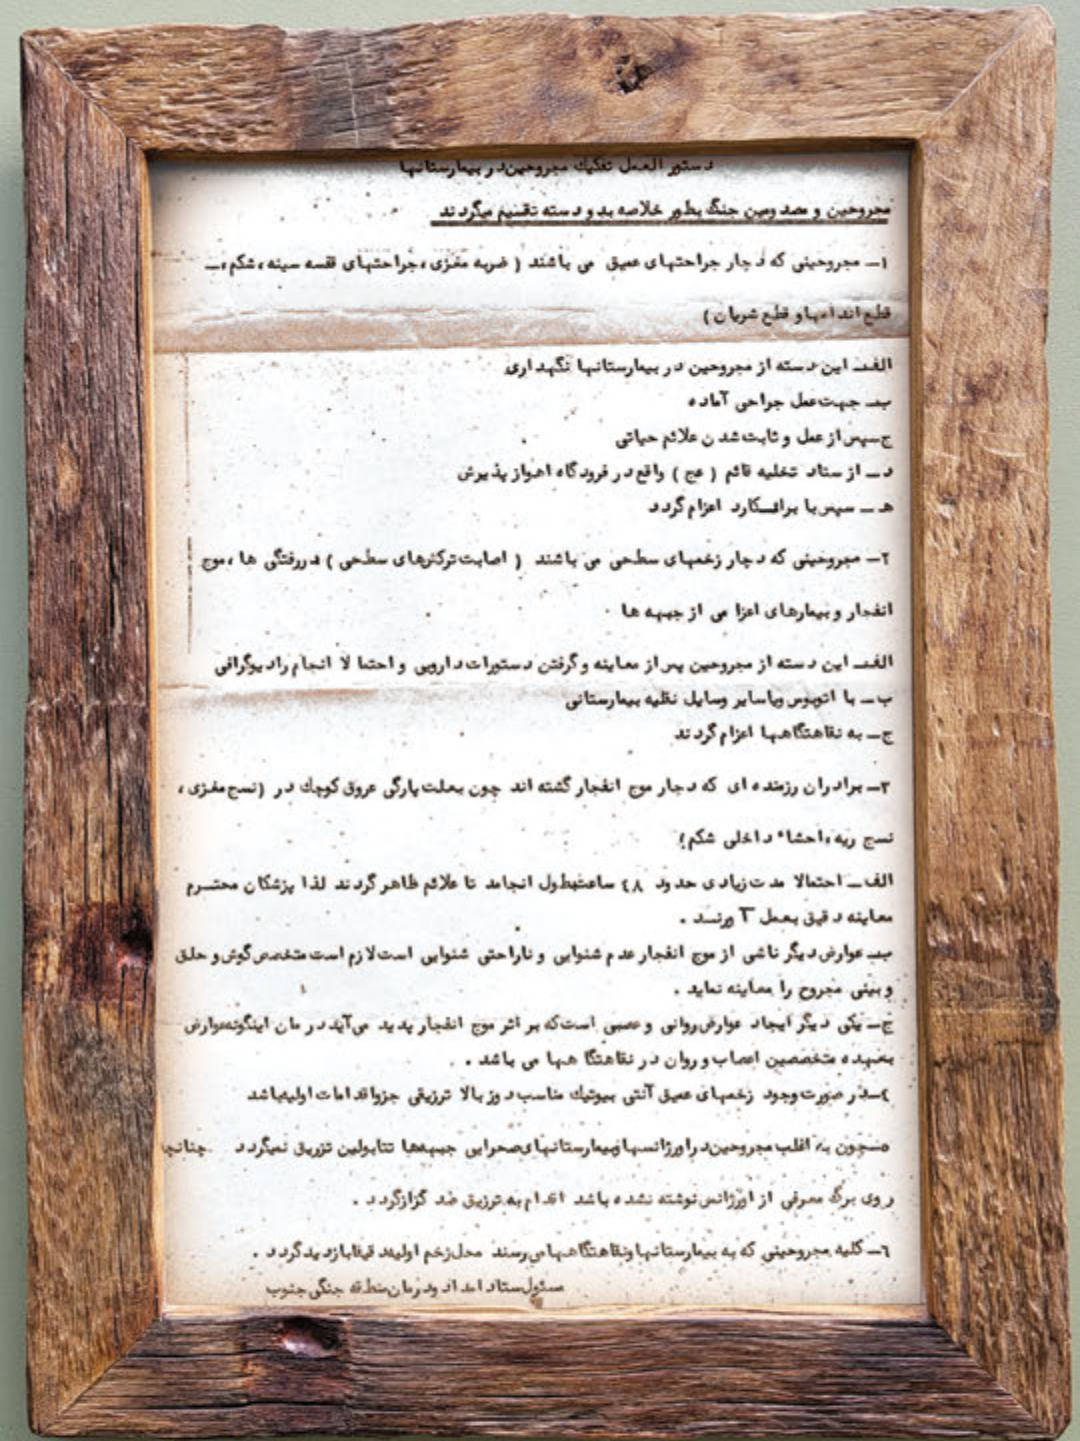 دستور العمل تفکیك مجروحین در بیمارستانها
مجروحین و مصدومین جنگ بطور خلاصه بدو دسته تقسیم میگردند
۱ــ مجروحینی که دچار جراحتهای عمیق می باشند ( ضربه مغزی ،جراحتهای قفسه سینه ،شکم ،ــ
قطع اندامها و قطع شریان )
الفــ این دسته از مجروحین در بیمارستانها نگهداری
بــ جهت عمل جراحی آماده
جــ سپس از عمل و ثابت شدن علائم حیاتی
د ــ از ستاد تخلیه قائم ( عج ) واقع در فرودگاه اهواز پذیرش
هـ ــ سپس با برانسکارد اعزام گردد
۲ــ مجروحینی که دچار زخمهای سطحی می باشند ( اصابت ترکشهای سطحی ) دررفتگی ها ،موج
انفجار و بیمارهای اعزا می از جبهه ها
الفــ این دسته از مجروحین پس از معاینه و گرفتن دستورات داروپی و احتما لا انجام رادیوگرافی
ب ــ با اتوبوس ویاسایر وسایل نقلیه بیمارستانی
ج ــ به نقاهتگاهها اعزام گردند
۳ــ برادران رزمنده ای که دچار موج انفجار گشته اند چون بعلت پارگی عروق کوچك در (نسج مغزی ،
نسج ریه ،احشاء داخلی شکم)
الف ــ احتمالا مدت زیادی حدود ٤٨ ساعت بطول انجامد تا علائم ظاهر گردند لذا پزشکان محترم
معاینه دقیق بعمل آورند .
بــ عوارض دیگر ناشی از موج انفجار عدم شنوایی و ناراحتی شنوایی است لازم است متخصص گوش و حلق
و بینی مجروح را معاینه نماید .
جــ یکی دیگر ایجاد عوارض روانی و عصبی است که بر اثر موج انفجار پدید می‌آید در مان اینگونه عوارض
بعهده متخصصین اعصاب و روان در نقاهتگا هها می باشد .
٤ــ در صورت وجود زخمهای عمیق آنتی بیوتیك مناسب دوز بالا تزریقی جزو اقدامات اولیه باشد
۵ــ چون به اغلب مجروحین در اورژانسها و بیمارستانهای صحرایی جبهه‌ها تتابولین تزریق نمیگردد .چنانچه
روی برگ معرفی از اورژانس نوشته نشده باشد اقدام به ترزیق ضد گزاز گردد .
٦ــ کلیه مجروحینی که به بیمارستانها و نقاهتگاهها می رسند محل زخم اولیه دقیقا بازدید گردد .
مسئول ستاد امداد و درمان منطقه جنگی جنوب